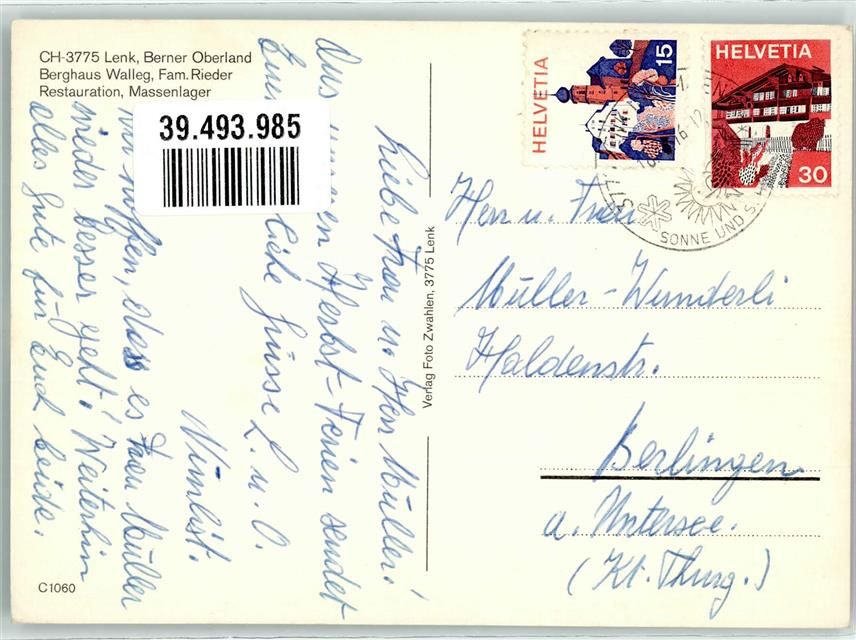 CH-3775 Lenk, Berner Oberland
Berghaus Walleg, Fam. Rieder
Restauration, Massenlager
39.493.985
Liebe Frau u. Herr Müller!
Aus unseren Herbst-Ferien sendet
liebe Grüsse L. u. O.
Nimlist.
hoffen, dass es Frau Müller
wieder besser geht! Weiterhin
alles Gute für Euch beide.
C1060
Verlag Foto Zwahlen, 3775 Lenk
HELVETIA
15
HELVETIA
30
SONNE UND
Herr u. Frau
Müller-Wunderli
Haldenstr.
Berlingen
a. Untersee.
(Kt. Thurg.)